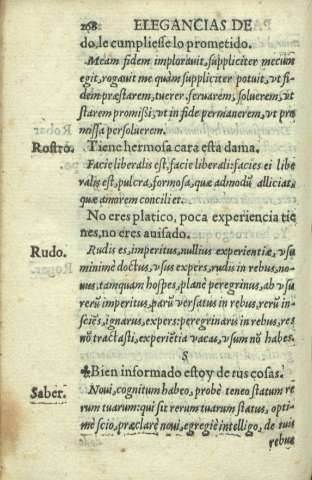 268 ELEGANCIAS DE
do, le cumpliesse lo prometido.
Meam fidem implorauit, suppliciter mecum
egit, rogauit me quàm suppliciter potuit, vt fi-
dem præstarem, tuerer, seruarem, soluerem, vt
starem promißis, vt in fide permanerem, vt pro
missa persoluerem.
Rostro. Tiene hermosa cara esta dama.
Facie liberalis est, facie liberali: facies ei libe
ralis est, pulcra, formosa, quæ admodũ alliciat,
quæ amorem conciliet.
No eres platico, poca experiencia tie
nes, no eres auisado.
Rudo. Rudis es, imperitus, nullius experientiæ, vsu
minimè doctus, vsus expers, rudis in rebus, no-
uus, tamquam hospes, planè peregrinus, ab vsu
rerũ imperitus, parũ versatus in rebus, rerũ in-
sciẽs, ignarus, expers: peregrinaris in rebus, res
nõ tractasti, experiẽtia vacas, vsum nõ habes.
S
✤Bien informado estoy de tus cosas.
Saber. Noui, cognitum habeo, probè teneo statum re
rum tuarum: qui sit rerum tuarum status, opti-
mè scio, præclarè noui, egregiè intelligo, de tuis
rebus